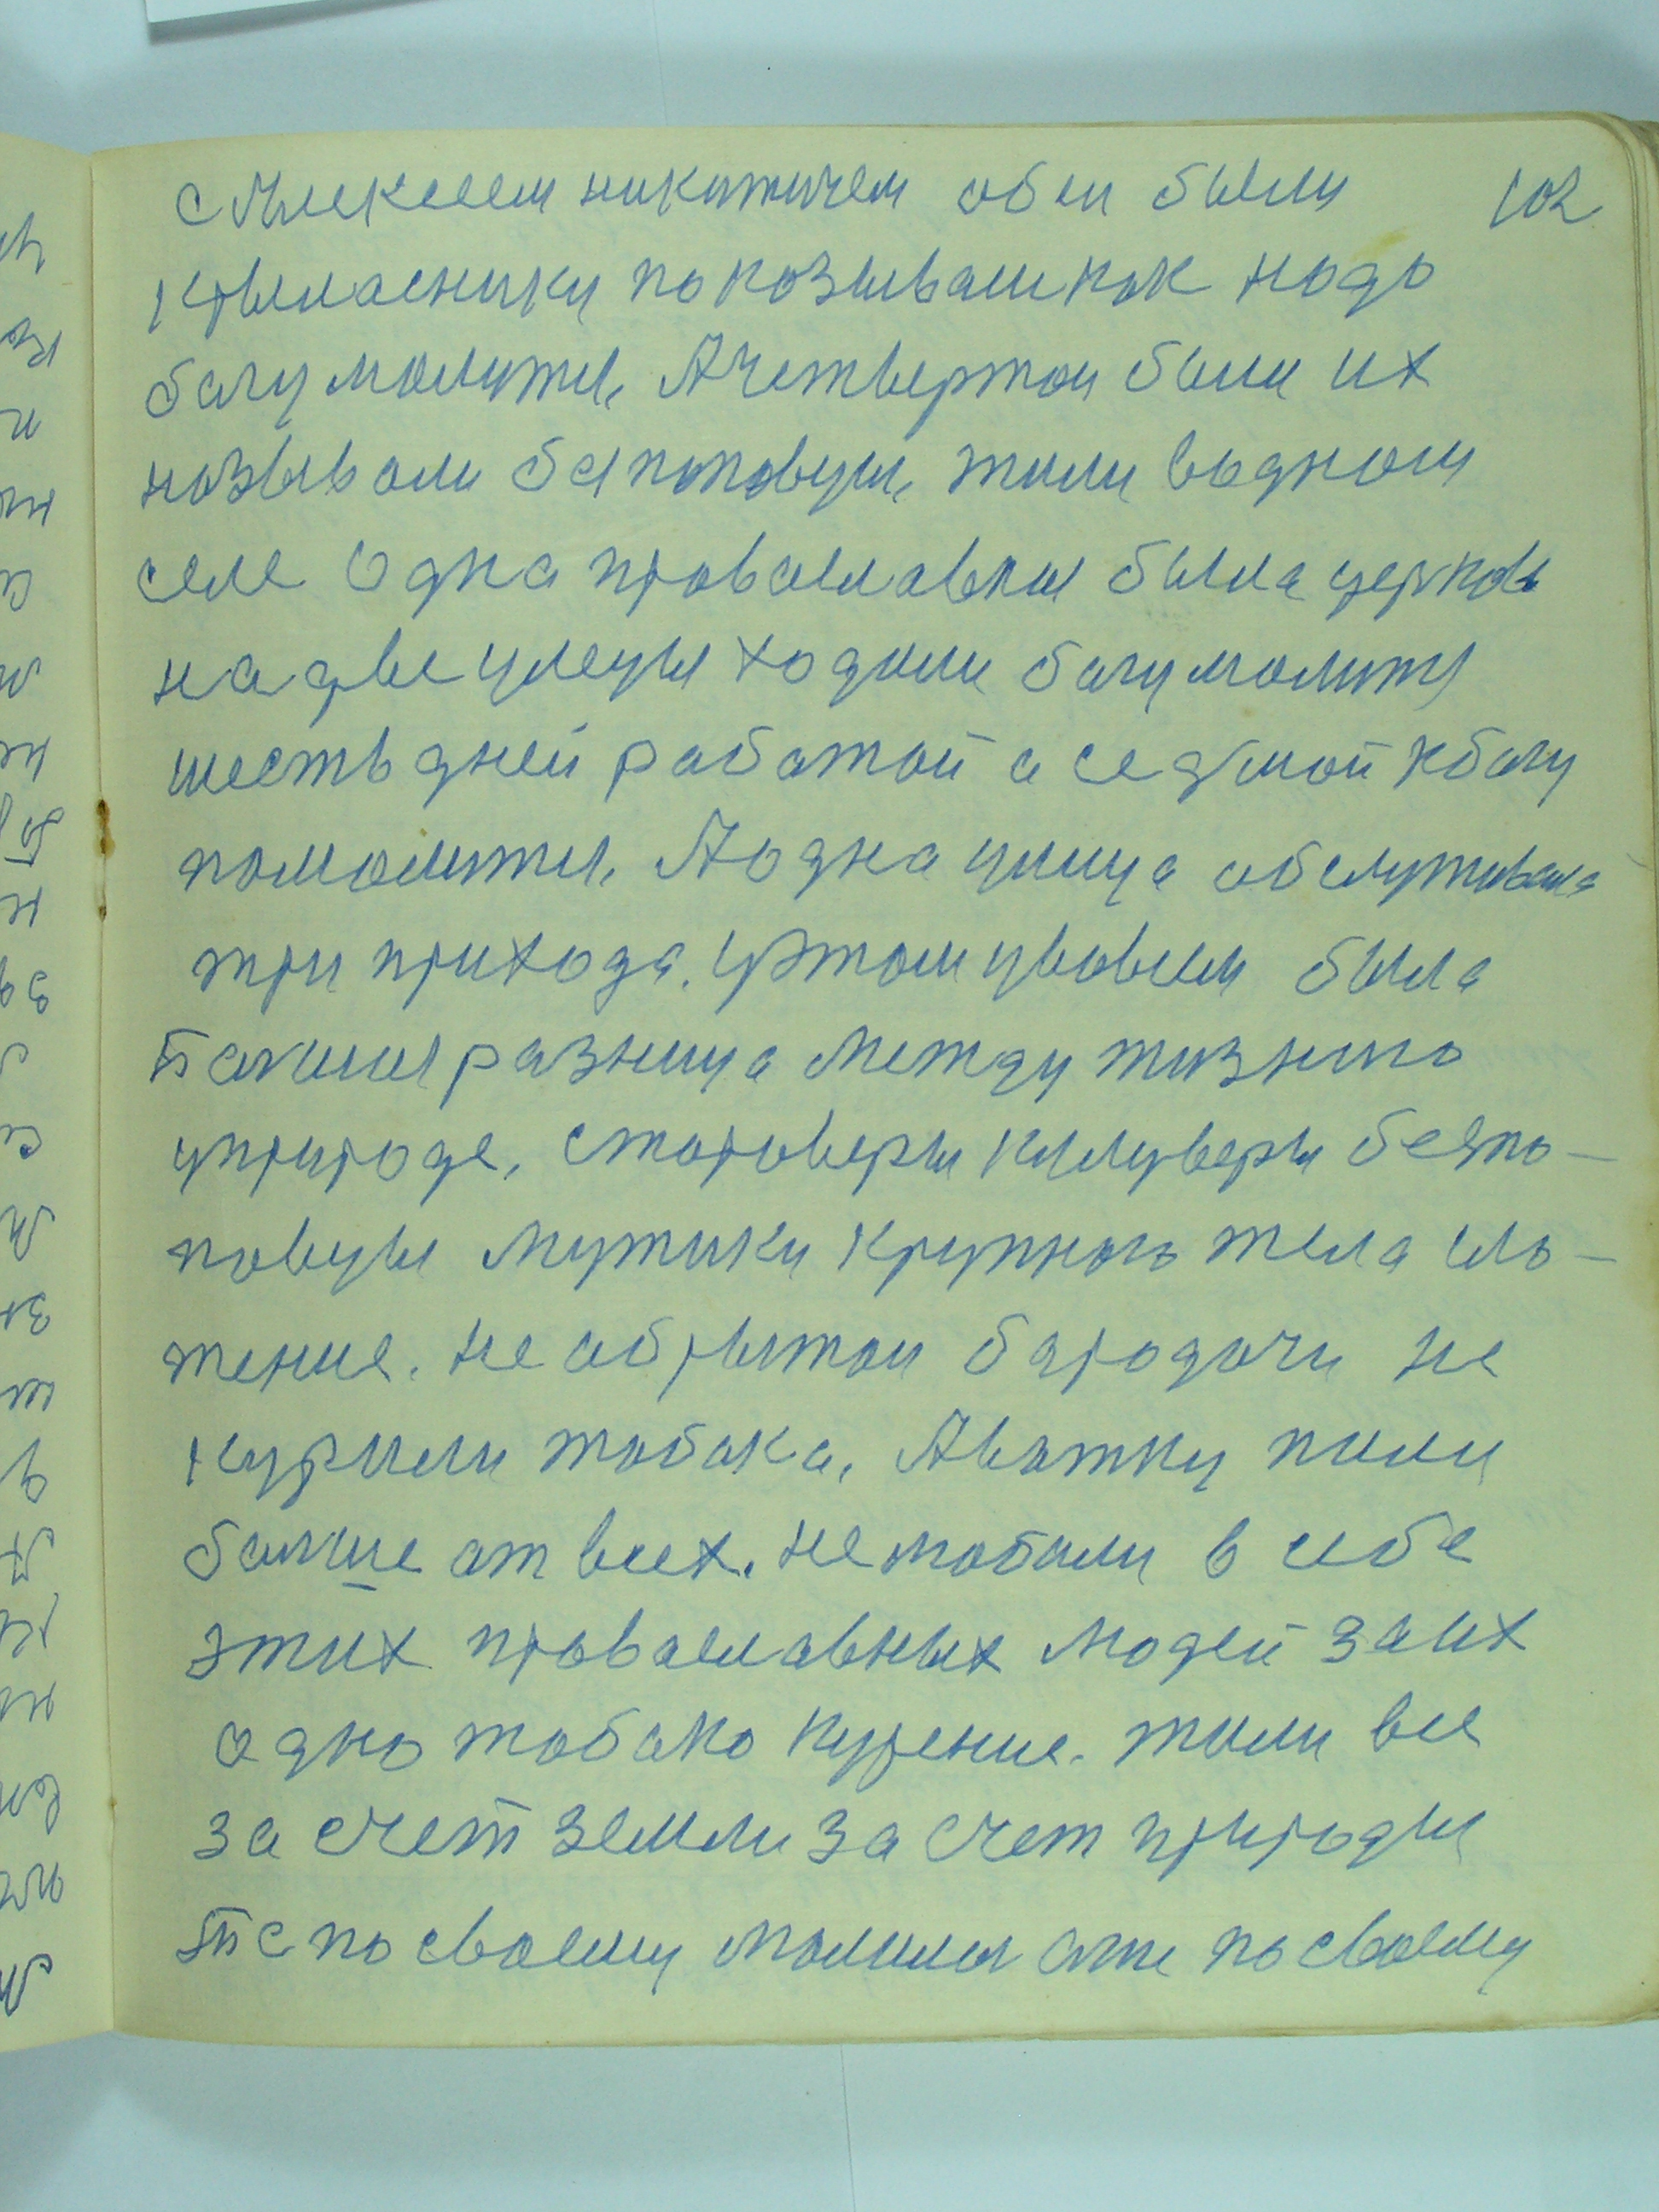 с Алексеем никитичем обеи были 102
крыласники показывали как надо
богу молится, А четвертои были их
называли бяпоповцы, жили водном
селе Одна провославная была церковь
на две улецы ходили богу молится
шесть дней работой а седмой к богу
помолится, А одна улица обслуживала
три прихода. И втом условеи была
Такаия разница между жизнию
и природе, староверы кулугеры бепо-
повцы мужики крупного тела сло-
жение. не обрытои бородачи не
курили тобака, А воткy пили
болше от всех. не любили в себе
этих провославных людей за их
одно тобако курение. жили все
за счет земли за счет природы
Те по своему молился оте по своему